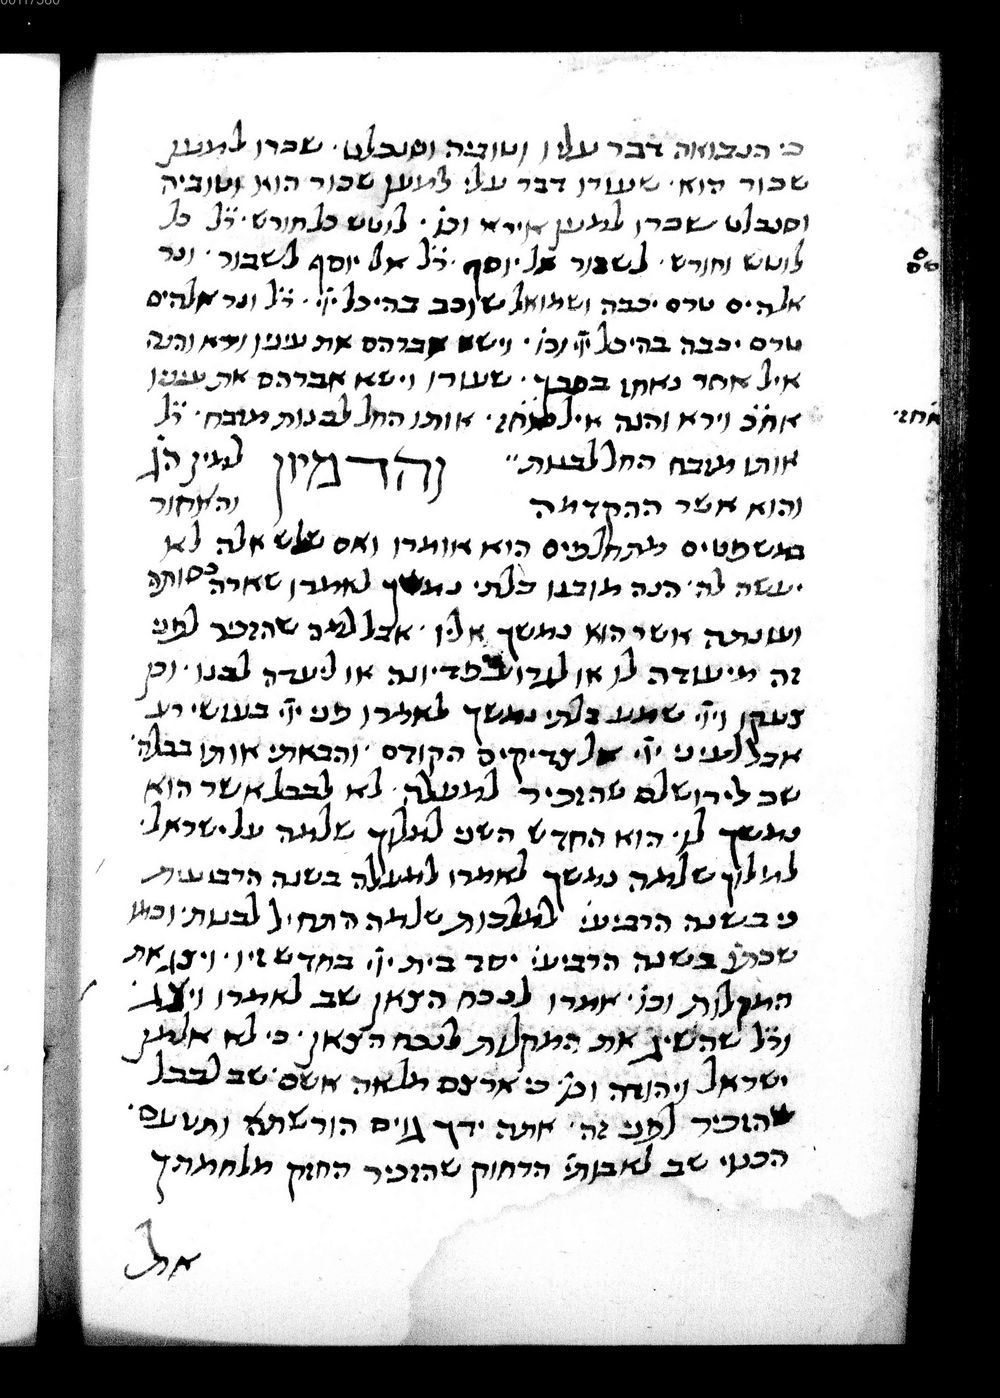 כי הנבואה דבר עליו וטוביה וסנבלט · שכרו למען
שכור הוא · שעורו דבר עלי למען שכור הוא וטוביה
וסנבלט שכרו למען אירא וכו׳ · לוטש כל חורש · ר״ל כל
לוטש וחורש · לשבור אל יוסף · ר״ל אל יוסף לשבור · ונר
אלהים טרם יכבה ושמואל שוכב בהיכל יי׳ · ר״ל ונר אלהים
טרם יכבה בהיכל יי׳ וכו׳ · וישא אברהם את עיניו וירא והנה
איל אחר נאחז בסבך · שעורו וישא אברהם את עיניו
אח״כ וירא והנה איל · אותו החל לבנות מזבח · ר״ל
אותו מזבח החל לבנות ״ והדמיון למין הז׳
והוא אשר ההקדמה והאחור
במשפטים מתחלפים הוא אומרו ואם שלש אלה לא
יעשה לה · הנה מובנו בלתי נמשך לאמרו שארה כסותה
ועונתה אשר הוא נמשך אליו · אבל למה שהזכיר לפני
זה מיעודה לו או לבנו או ליעדה לבנו · וכן
צעקו ויי׳ שמע בלתי נמשך לאמרו פני יי׳ בעושי רע
אבל לעיני יי׳ אל צדיקים הקודם · והבאתי אותו בבלה ·
שב לירושלם שהזכיר למעלה · לא לבבל אשר הוא
נמשך לו · הוא החדש השני למלוך שלמה על ישראל ·
למלוך שלמה נמשך לאמרו למעלה בשנה הרבועית
כי בשנה הרביעי׳ למלכות שלמה התחיל לבנות · וכמו
שכתו׳ בשנה הרביעי׳ יסד בית יי׳ בחדש זיו · ויצג את
המקלות וכו׳ · אמרו לנכח הצאן שב לאמרו ויצג ·
ור״ל שהציג את המקלות לנכח הצאן · כי לא אלמן
ישראל ויהודה וכו׳ כי ארצם מלאה אשם · שב לבבל
שהזכיר לפני זה · אתה ידך גוים הורשת ותטעם ·
הכנוי שב לאבותי׳ הרחוק שהזכיר החזק מלחמתך
את